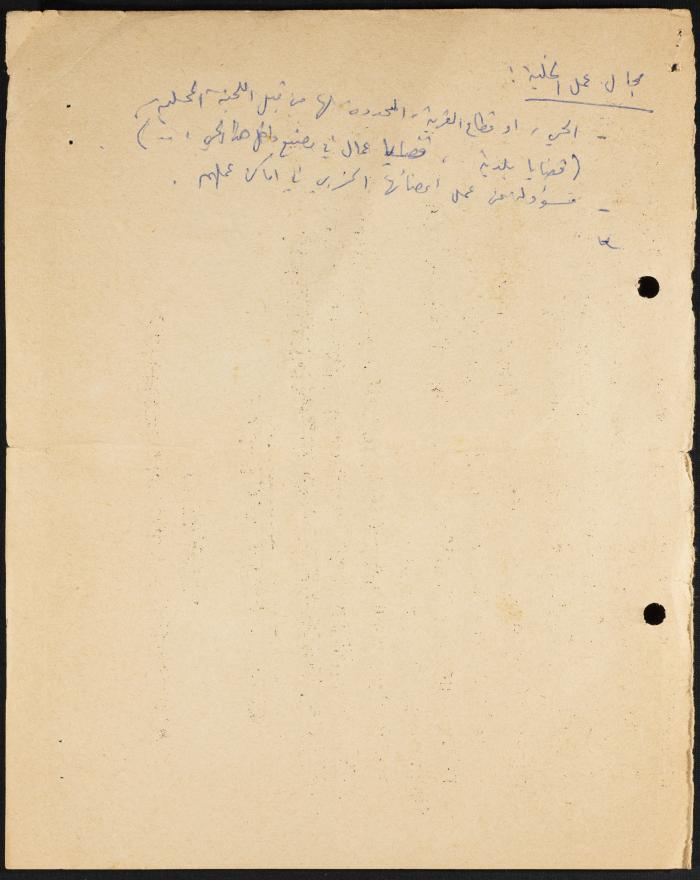 مجال عمل الخلية :
- الحي ، او قطاع القرية ، المحدده لها من قبل اللجنة المحلية
(قضايا بلدية ، قضايا عمال في مصنع داخل هذا الحي ، ...) .
- مسؤولة عن عمل اعضائها الحزبي في اماكن عملهم .